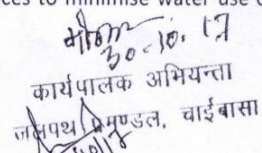 ces to minimise water use
30.10.17
कार्यपालक अभियन्ता
जलपथ प्रमण्डल, चाईबासा